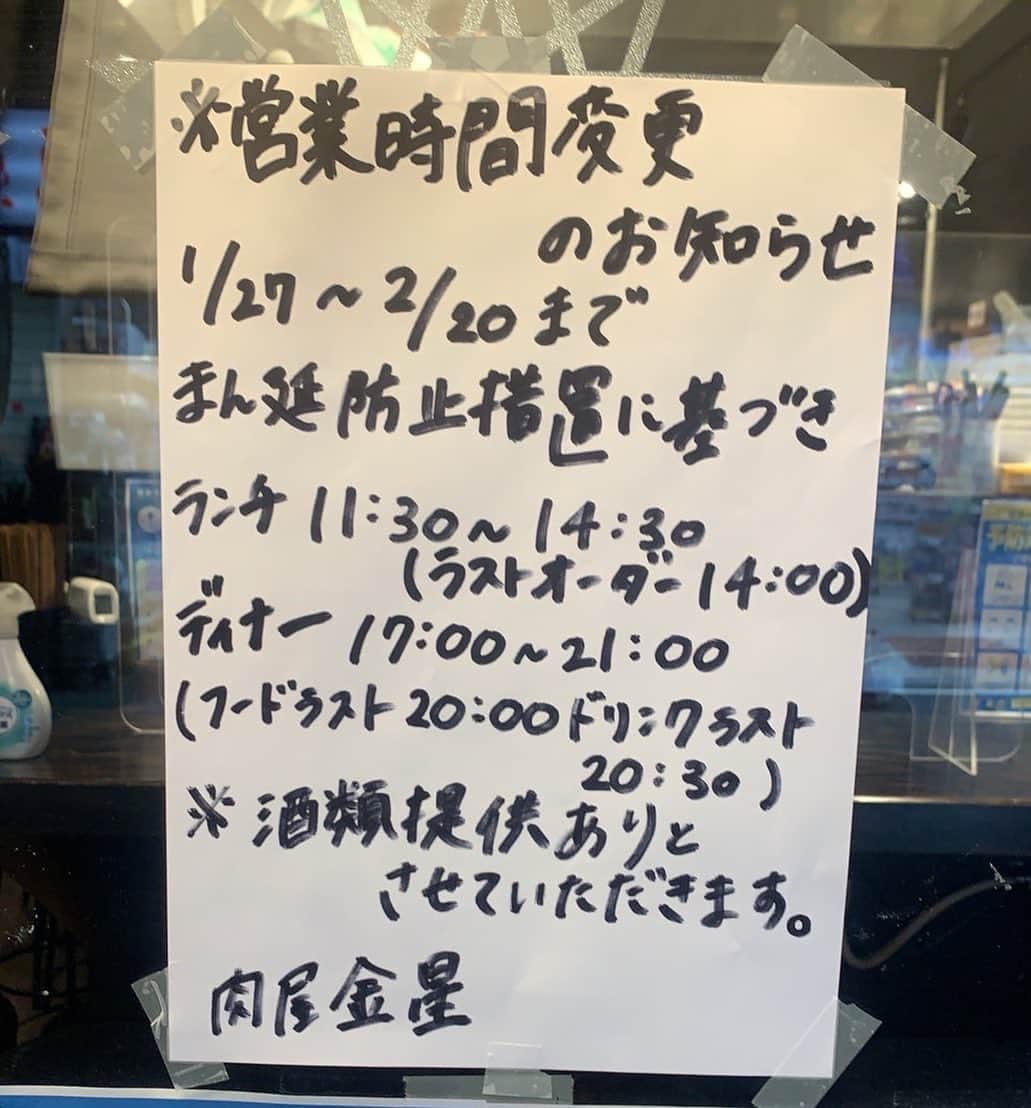 ※営業時間変更
のお知らせ
1/27～2/20まで
まん延防止措置に基づき
ランチ 11:30～14:30
(ラストオーダー14:00)
ディナー 17:00～21:00
(フードラスト20:00ドリンクラスト
20:30)
※酒類提供ありと
させていただきます。
肉屋金星